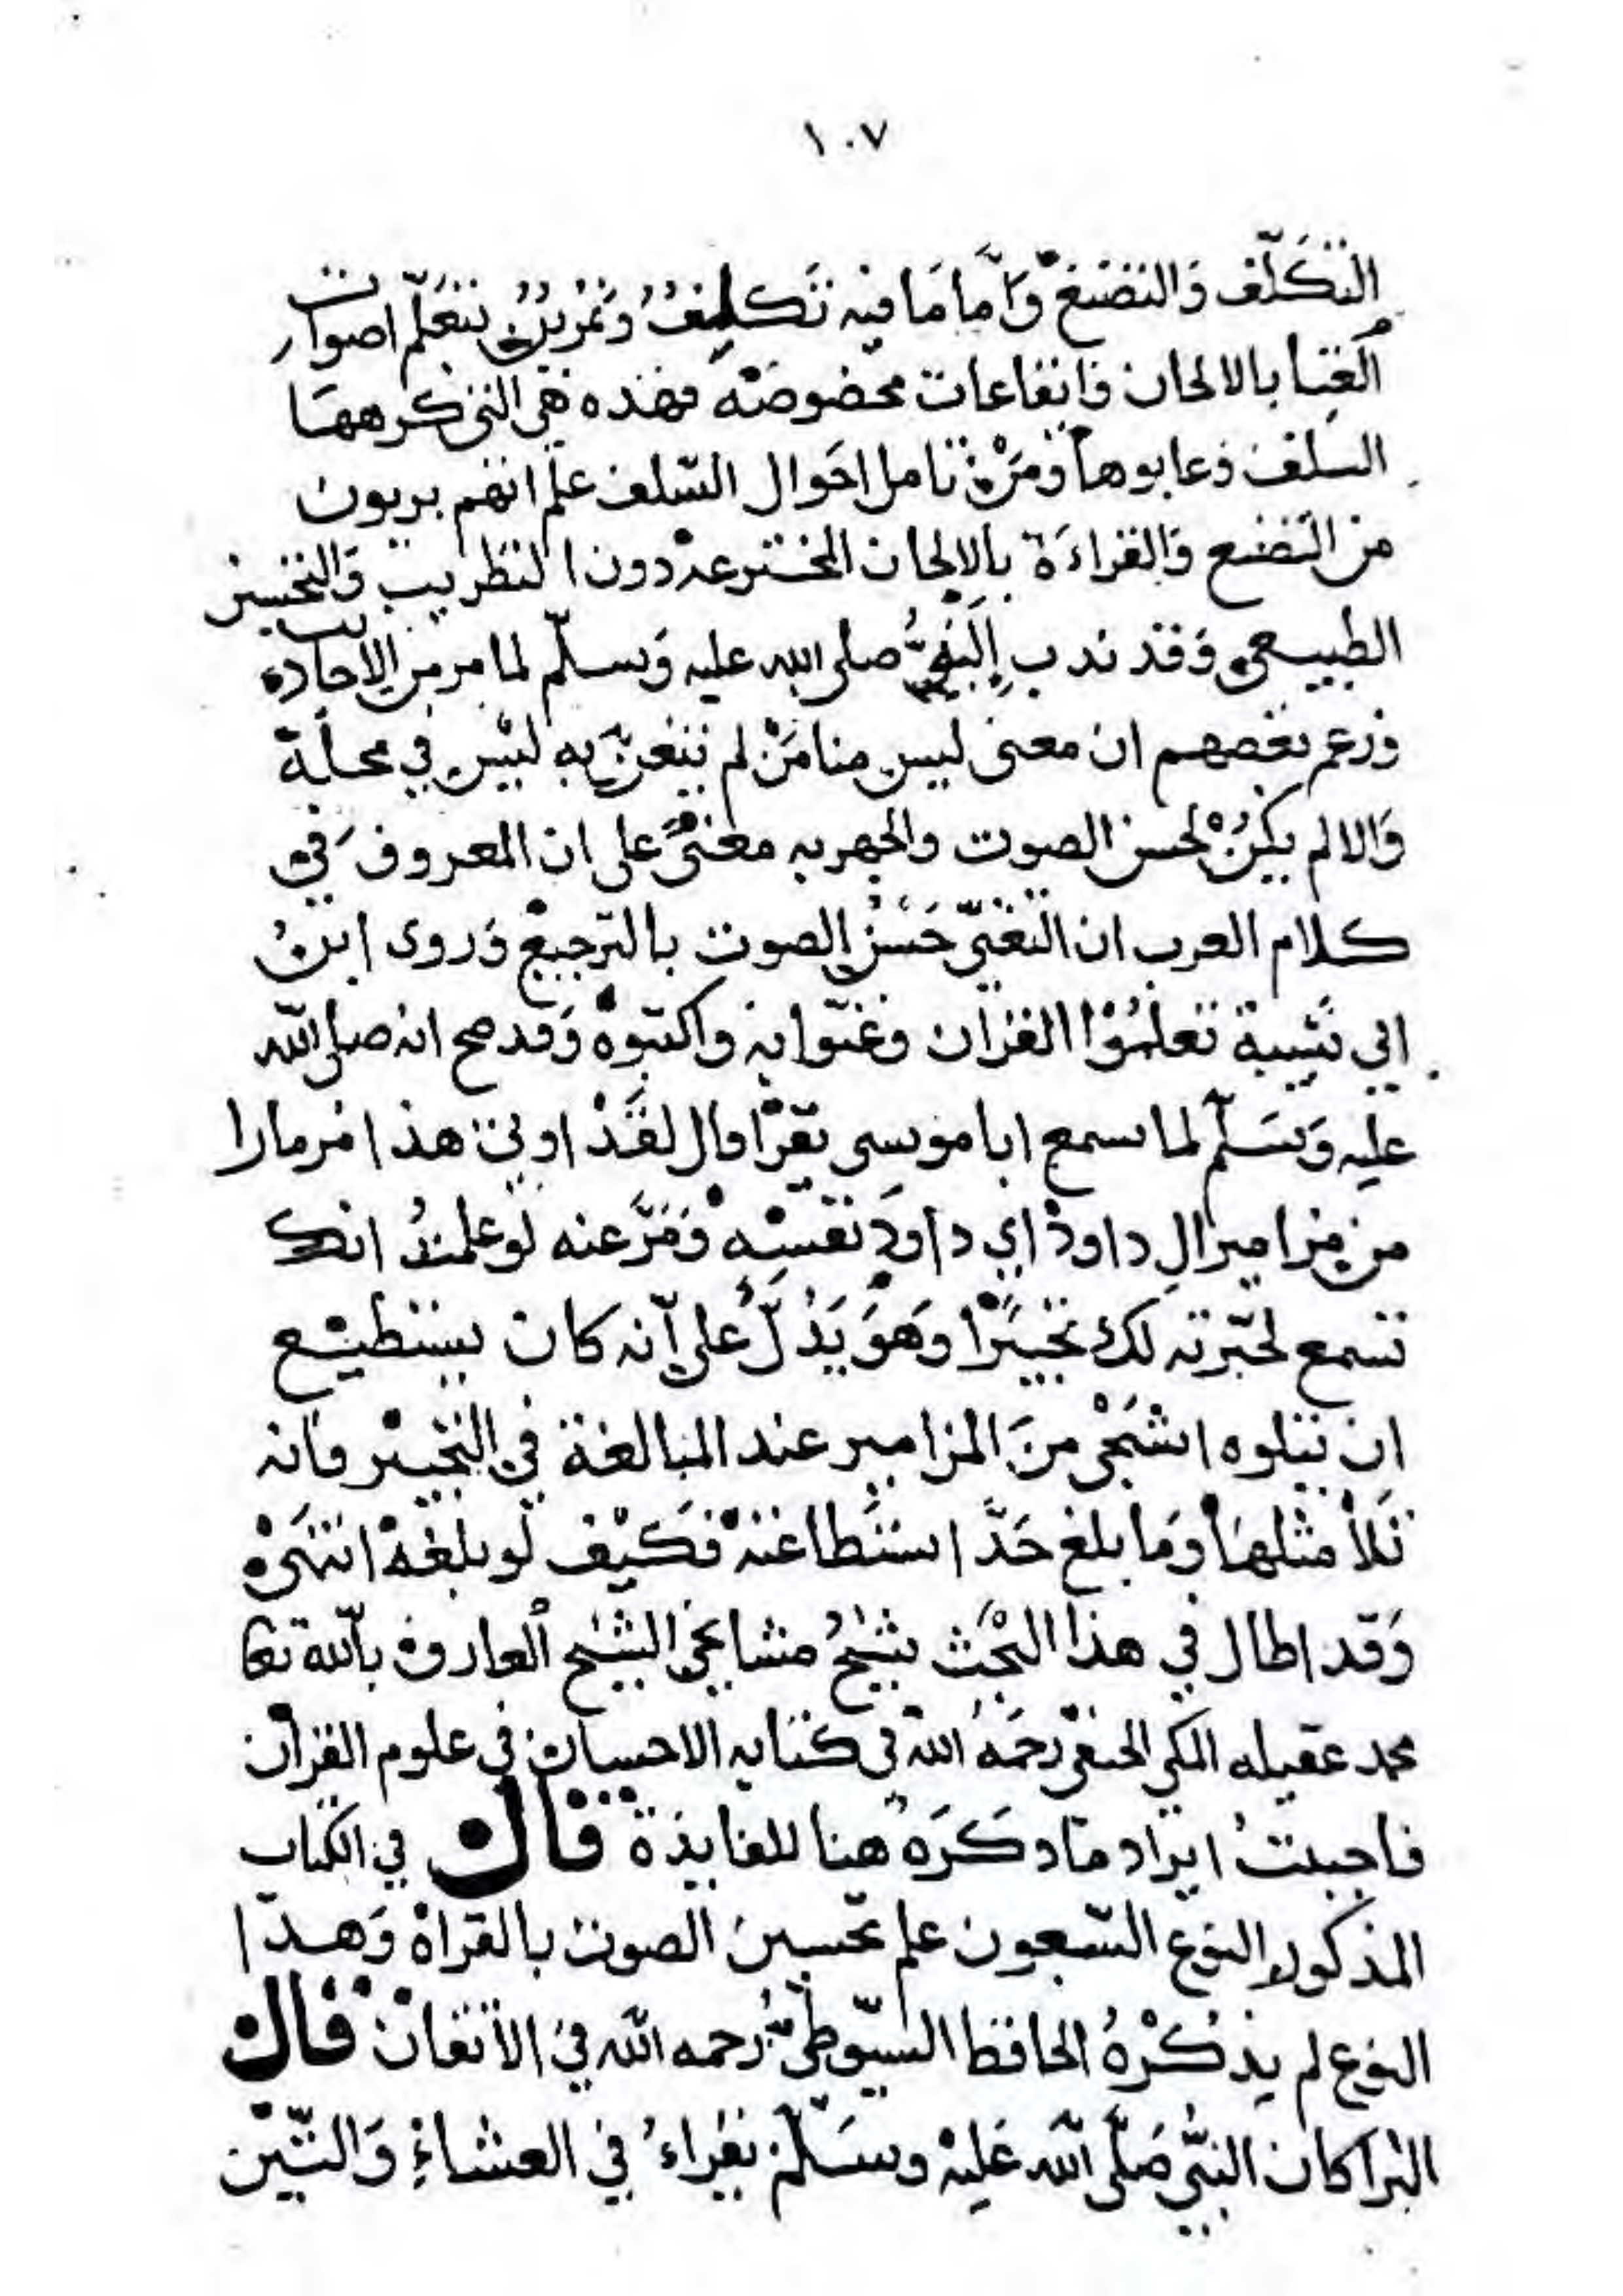 ١٠٧
التكلّف وَالتصنع وَامّا مَا فيه تَكليفُ وتمرينُ بتعلّم اصوات
الغِنا بالالحان وَايقاعات مخصوصَة فهذه هي التي كرهها
السلف وَعابوها وَمَنْ تامل احَوال السّلف علم انهم بريون
من التصنع وَالقراءَة بالالحان المخترعة دون التطريب وَالتحسين
الطبيعي وَقد ندب اِليه النبيُّ صلى الله عليه وَسلّم لما مر من الاحاديث
وزعم بعضهم ان معنى ليس منا مَنْ لم يتغنّ به ليْس في محلّه
وَالا لم يكنْ لحسن الصوت والجهر به معنىً على ان المعروف في
كلام العرب ان التغنّي حَسْنُ الصوت بالترجيع وَروى ابنُ
ابي شيبة تعلمُوْا القران وغنّوا به واكتبوْه وَقد صح انه صلى اللّه
عليه وَسَلّم لما سمع ابا موسى يقرْا قال لقَدْ اوتي هذا مزمارا
من مزامير الِ داودْ اي داودِ نفسِهْ وَمَرَّ عنه لو علمتُ انك
تسمع لحبّرته لك تحبيَرًا وهَوَ يَدُلَّ على اَنه كان يستطيْع
ان يتلوه اشجى منَ المزامير عند المبالغة في التحبيْر فانه
تَلاْ مثلهَا وَمَا بلغ حَدَّ استَطاعتهْ فكَيْف لو بلغهْ انتهىْ
وَقد اطال في هذا البحْث شيْخُ مشايخي الشيْخ العارف باَللّه تعا
محمد عقيله المكي الحنفي رَحمَهُ اللّه في كتابه الاحسان في علوم القرآن
فاحببتُ ايراد مَا دكَرَه هنا للفايدة قال في الكتاب
المذكور النوع السّبعون علم تحسين الصوت بالقراة وَهدا
النوع لم يذكُرْهُ الحافظ السّيوطيُّ رحمه اللّه في الاتقانْ قال
البرا كان النبَّي صَلَّى اَللّه عَليْه وسَلّمْ يقراءُ في العشاءِ وَالتّيْن